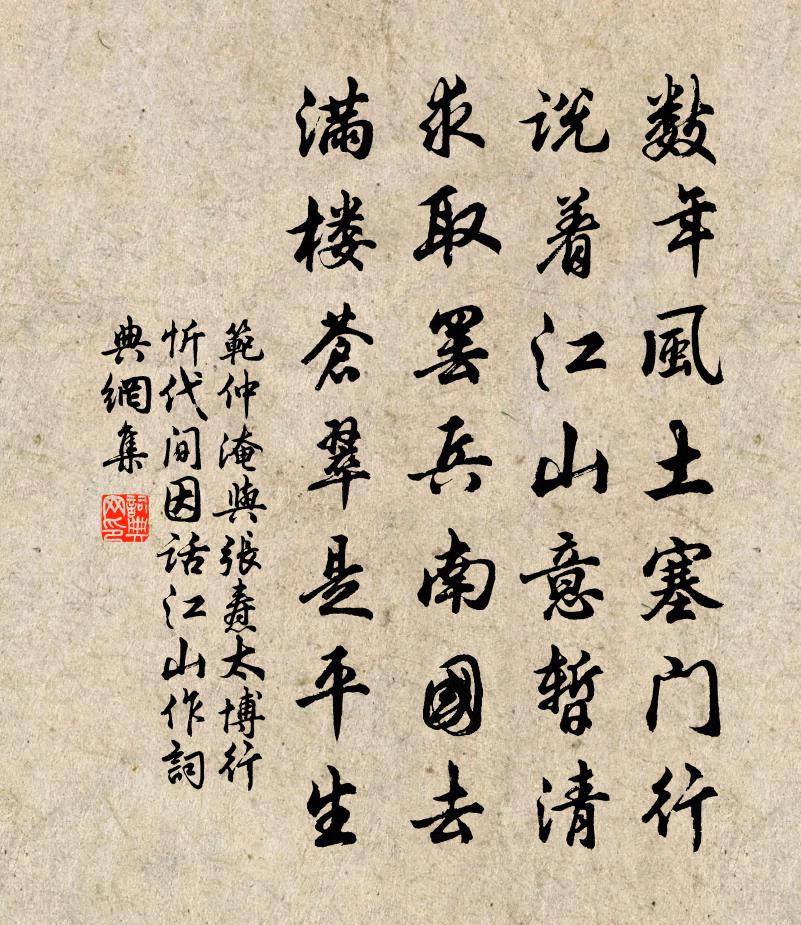 數年風土塞门行
说着江山意暫清
求取罢兵南國去
满楼蒼翠是平生
範仲淹與張燾太博行
忻代间因话江山作詞
典網集
詞典网印